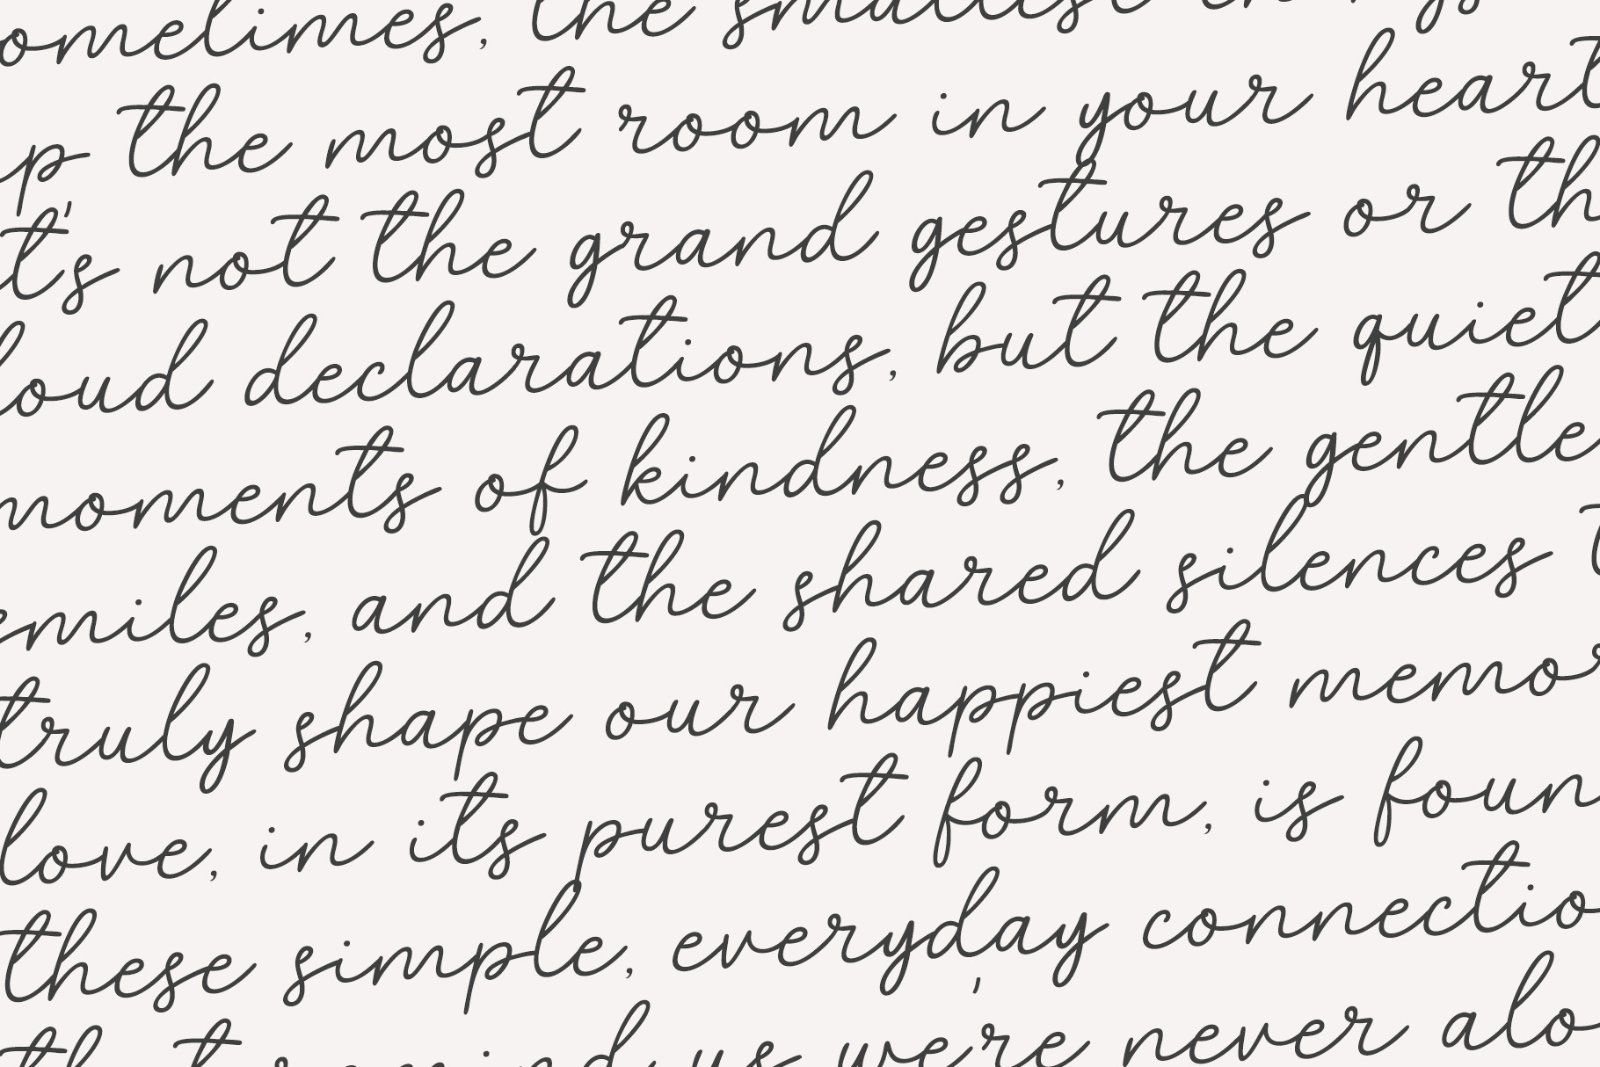 ometimes, the smallest things
p the most room in your heart
t's not the grand gestures or th
loud declarations, but the quiet
moments of kindness, the gentle
smiles, and the shared silences t
truly shape our happiest memor
love, in its purest form, is foun
these simple, everyday connectio
that remind us we're never alo